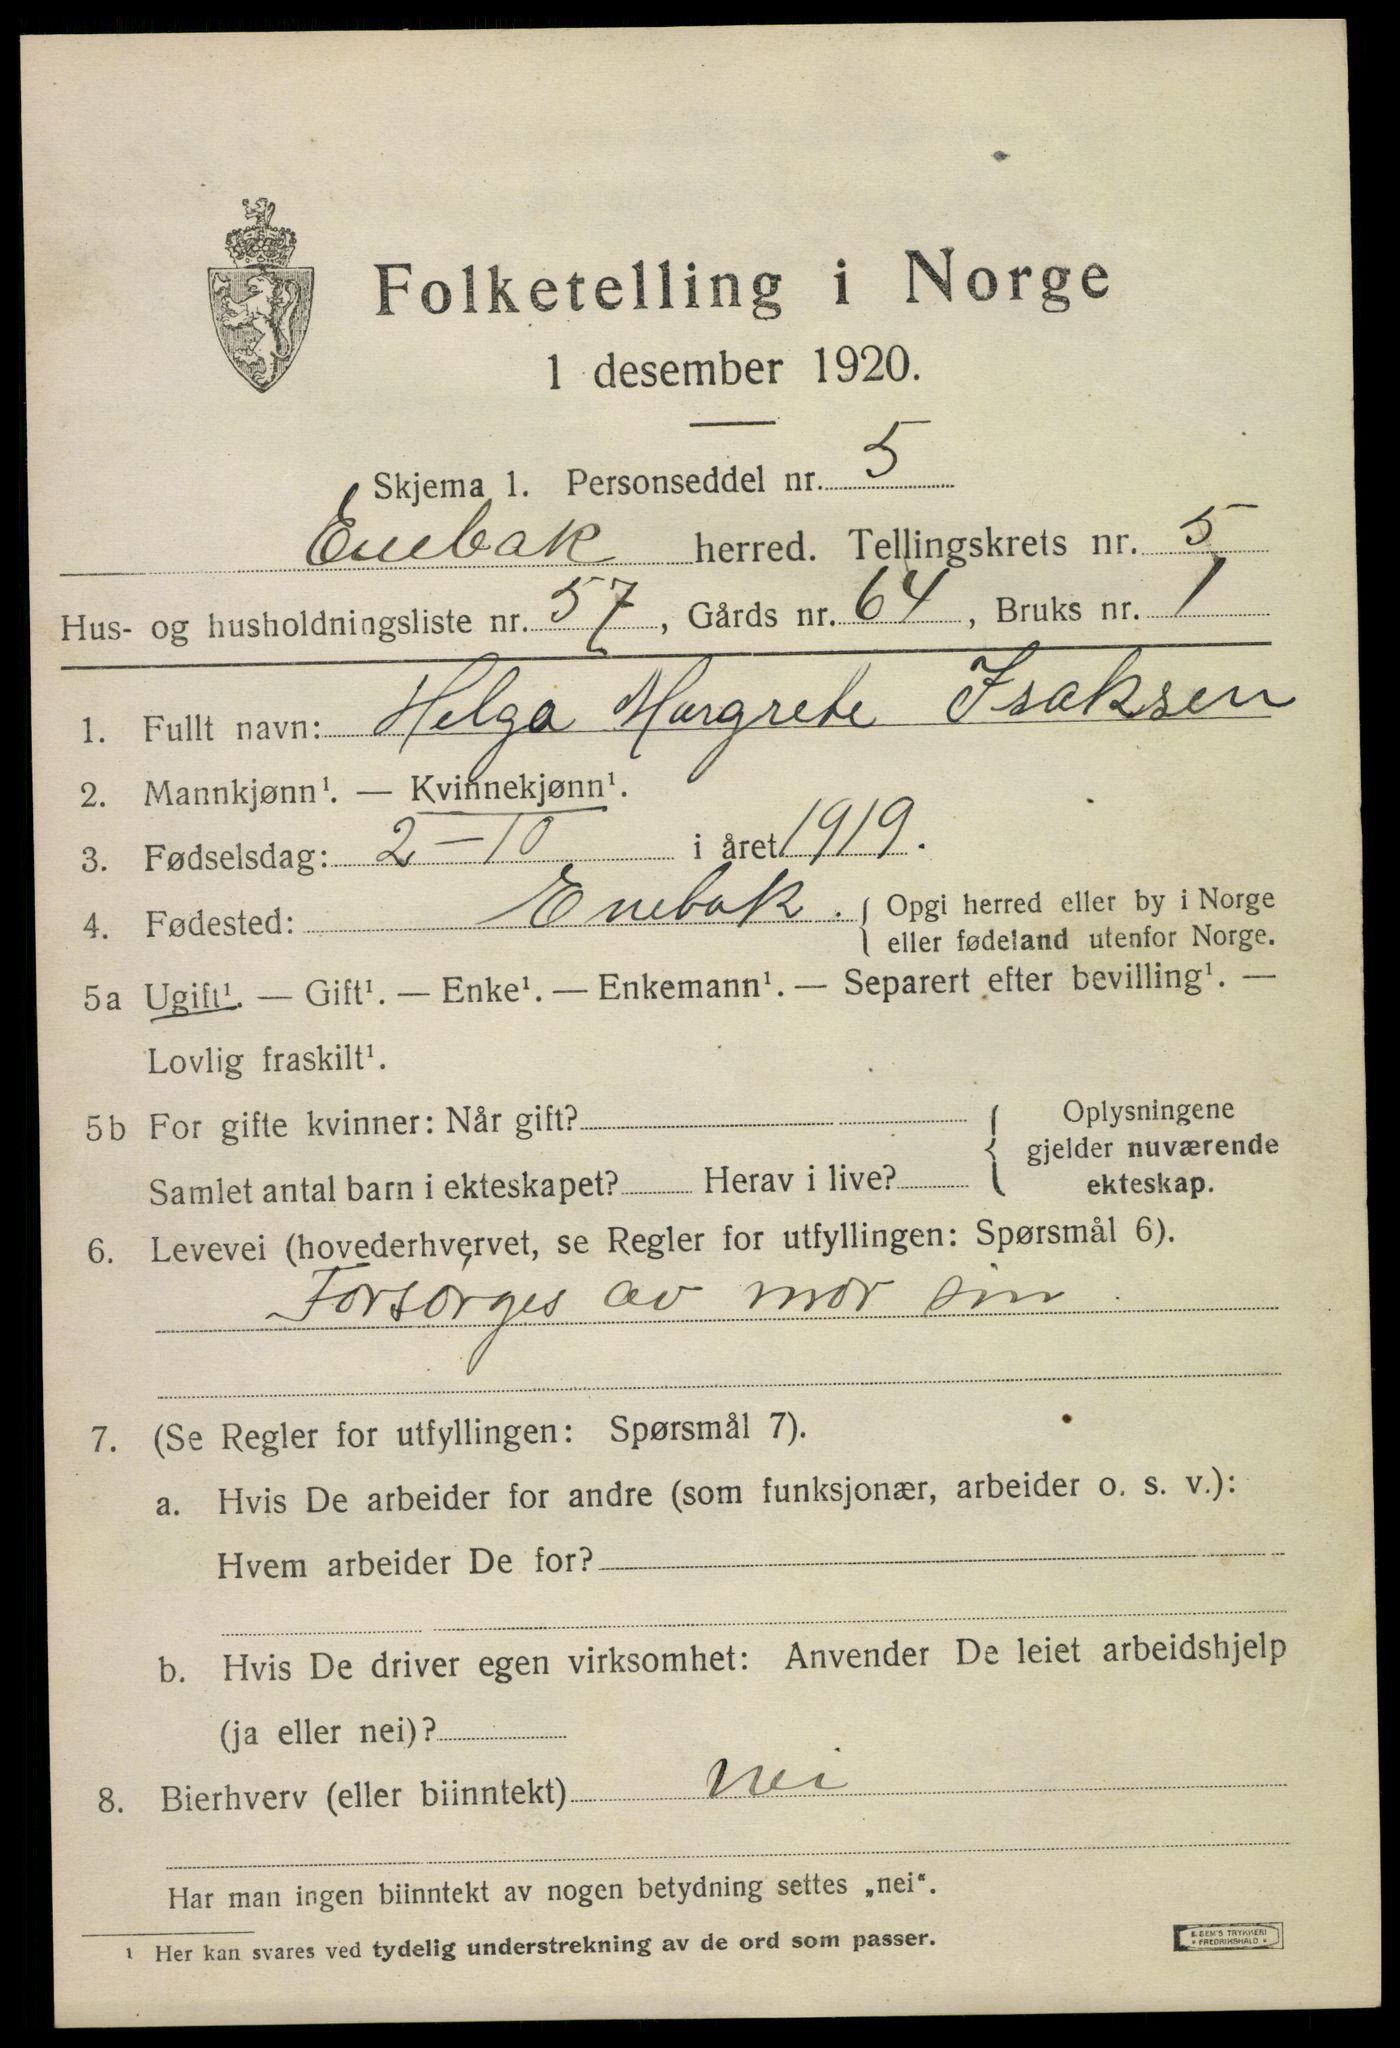 Folketelling i Norge
1 desember 1920.
Skjema 1. Personseddel nr. 5
Enebak herred. Tellingskrets nr. 5
Hus- og husholdningsliste nr. 57, Gårds nr. 64, Bruks nr. 1
1. Fullt navn: Helga Margrete Isaksen
2. Mannkjønn¹. — Kvinnekjønn¹.
3. Fødselsdag: 2-10 i året 1919.
4. Fødested: Enebak. { Opgi herred eller by i Norge
eller fødeland utenfor Norge.
5a Ugift¹. — Gift¹. — Enke¹. — Enkemann¹. — Separert efter bevilling¹. —
Lovlig fraskilt¹.
5b For gifte kvinner: Når gift?
Samlet antal barn i ekteskapet? Herav i live?
{ Oplysningene
gjelder nuværende
ekteskap.
6. Levevei (hovederhvervet, se Regler for utfyllingen: Spørsmål 6).
Forsørges av mor sin.
7. (Se Regler for utfyllingen: Spørsmål 7).
a. Hvis De arbeider for andre (som funksjonær, arbeider o. s. v.):
Hvem arbeider De for?
b. Hvis De driver egen virksomhet: Anvender De leiet arbeidshjelp
(ja eller nei)?
8. Bierhverv (eller biinntekt) nei
Har man ingen biinntekt av nogen betydning settes „nei“.
¹ Her kan svares ved tydelig understrekning av de ord som passer.
E. SEM'S TRYKKERI
FREDRIKSHALD